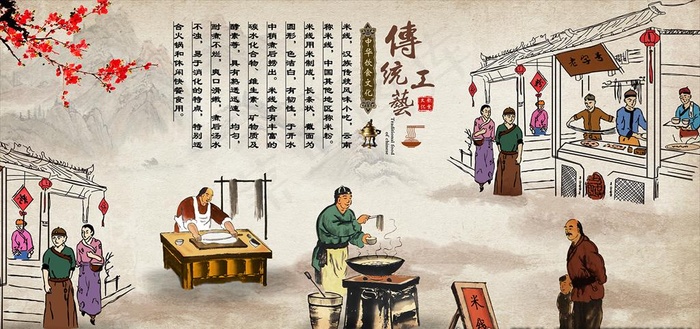 傳统工藝
美食
文化
Traditional food
of Chinese
中华饮食文化
米线，汉族传统风味小吃，云南
称米线，中国其他地区称米粉。
米线用米制成，长条状，截面为
圆形，色洁白，有韧性，于开水
中稍煮后捞出。米线含有丰富的
碳水化合物、维生素、矿物质及
酵素等，具有熟透迅速、均匀，
耐煮不烂，爽口滑嫩，煮后汤水
不浊，易于消化的特点，特别适
合火锅和休闲快餐食用。
老字号
米线